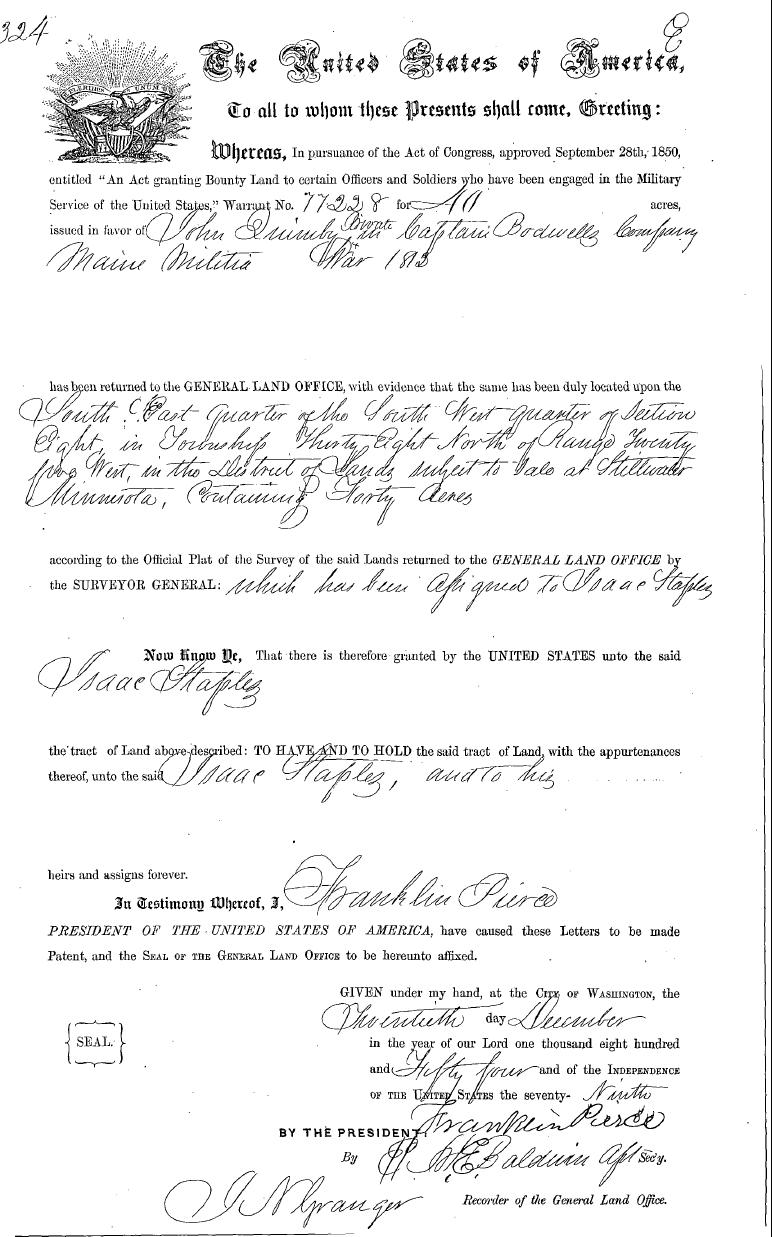 324
E
The United States of America,
E PLURIBUS UNUM
To all to whom these Presents shall come, Greeting:
Whereas, In pursuance of the Act of Congress, approved September 28th, 1850,
entitled "An Act granting Bounty Land to certain Officers and Soldiers who have been engaged in the Military
Service of the United States," Warrant No. 77228 for 40 acres,
issued in favor of John Quimby Private in Captain Bodwells Company
Maine Militia War 1812
has been returned to the GENERAL LAND OFFICE, with evidence that the same has been duly located upon the
South East quarter of the South West quarter of Section
Eight, in Township Thirty Eight North of Range Twenty
five West, in the District of Lands subject to Sale at Stillwater
Minnesota, Containing Forty Acres
according to the Official Plat of the Survey of the said Lands returned to the GENERAL LAND OFFICE by
the SURVEYOR GENERAL: which has been assigned to Isaac Staples
Now Know Ye, That there is therefore granted by the UNITED STATES unto the said
Isaac Staples
the tract of Land above-described: TO HAVE AND TO HOLD the said tract of Land, with the appurtenances
thereof, unto the said Isaac Staples, and to his
heirs and assigns forever.
In Testimony Whereof, I, Franklin Pierce
PRESIDENT OF THE UNITED STATES OF AMERICA, have caused these Letters to be made
Patent, and the SEAL OF THE GENERAL LAND OFFICE to be hereunto affixed.
GIVEN under my hand, at the CITY OF WASHINGTON, the
Twentieth day December
in the year of our Lord one thousand eight hundred
and Fifty four and of the INDEPENDENCE
OF THE UNITED STATES the seventy-Ninth
SEAL.
BY THE PRESIDENT: Franklin Pierce
By H. E. Baldwin Asst Sec'y.
J N Granger Recorder of the General Land Office.